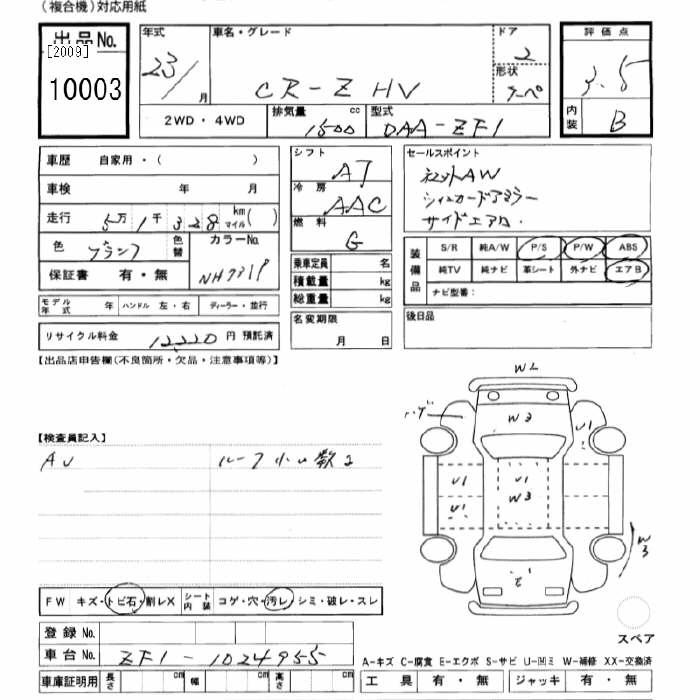 (複合機)対応用紙
出品No. [2009] 10003
年式 23/ 月
車名・グレード CR-Z HV
ドア 2
形状 クーペ
評価点 3.5
内装 B
2WD・4WD
排気量 1500 cc
型式 DAA-ZF1
車歴 自家用・( )
車検 年 月
走行 5万1千328 km マイル( )
色 ブラック 色替 カラーNo.
保証書 有・無
モデル年式 年 ハンドル 左・右 ディーラー・並行
リサイクル料金 12220 円 預託済
シフト AT
冷房 AAC
燃料 G
乗車定員 名
積載量 kg
総重量 kg
名変期限 月 日
セールスポイント
サイドエアロ
装備品
S/R 純A/W P/S P/W ABS
純TV 純ナビ 革シート 外ナビ エアB
ナビ型番:
後日品
【出品店申告欄(不良箇所・欠品・注意事項等)】
【検査員記入】
ルーフ
W2
W3
U1
U1 U1
W3
U1
W3
E1
FW キズ・トビ石・割レX シート内装 コゲ・穴・汚レ・シミ・破レ・スレ
登録No.
車台No. ZF1-1024955
車庫証明用 長さ cm 幅 cm 高さ cm
スペア
A-キズ C-腐食 E-エクボ S-サビ U-凹ミ W-補修 XX-交換済
工具 有・無 ジャッキ 有・無